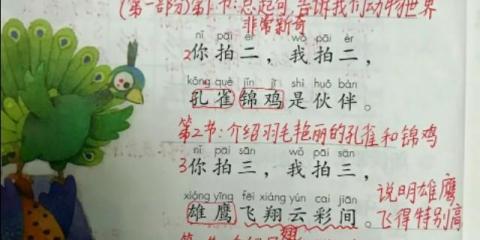 (第一部分)第1节:总起句,告诉我们动物世界
非常新奇
nǐ pāi èr wǒ pāi èr
2你拍二，我拍二，
kǒng què jǐn jī shì huǒ bàn
孔雀锦鸡是伙伴。
第2节:介绍羽毛艳丽的孔雀和锦鸡
nǐ pāi sān wǒ pāi sān
3你拍三，我拍三，
xióng yīng fēi xiáng yún cai jiān
雄鹰飞翔云彩间。
说明雄鹰
飞得特别高
翔